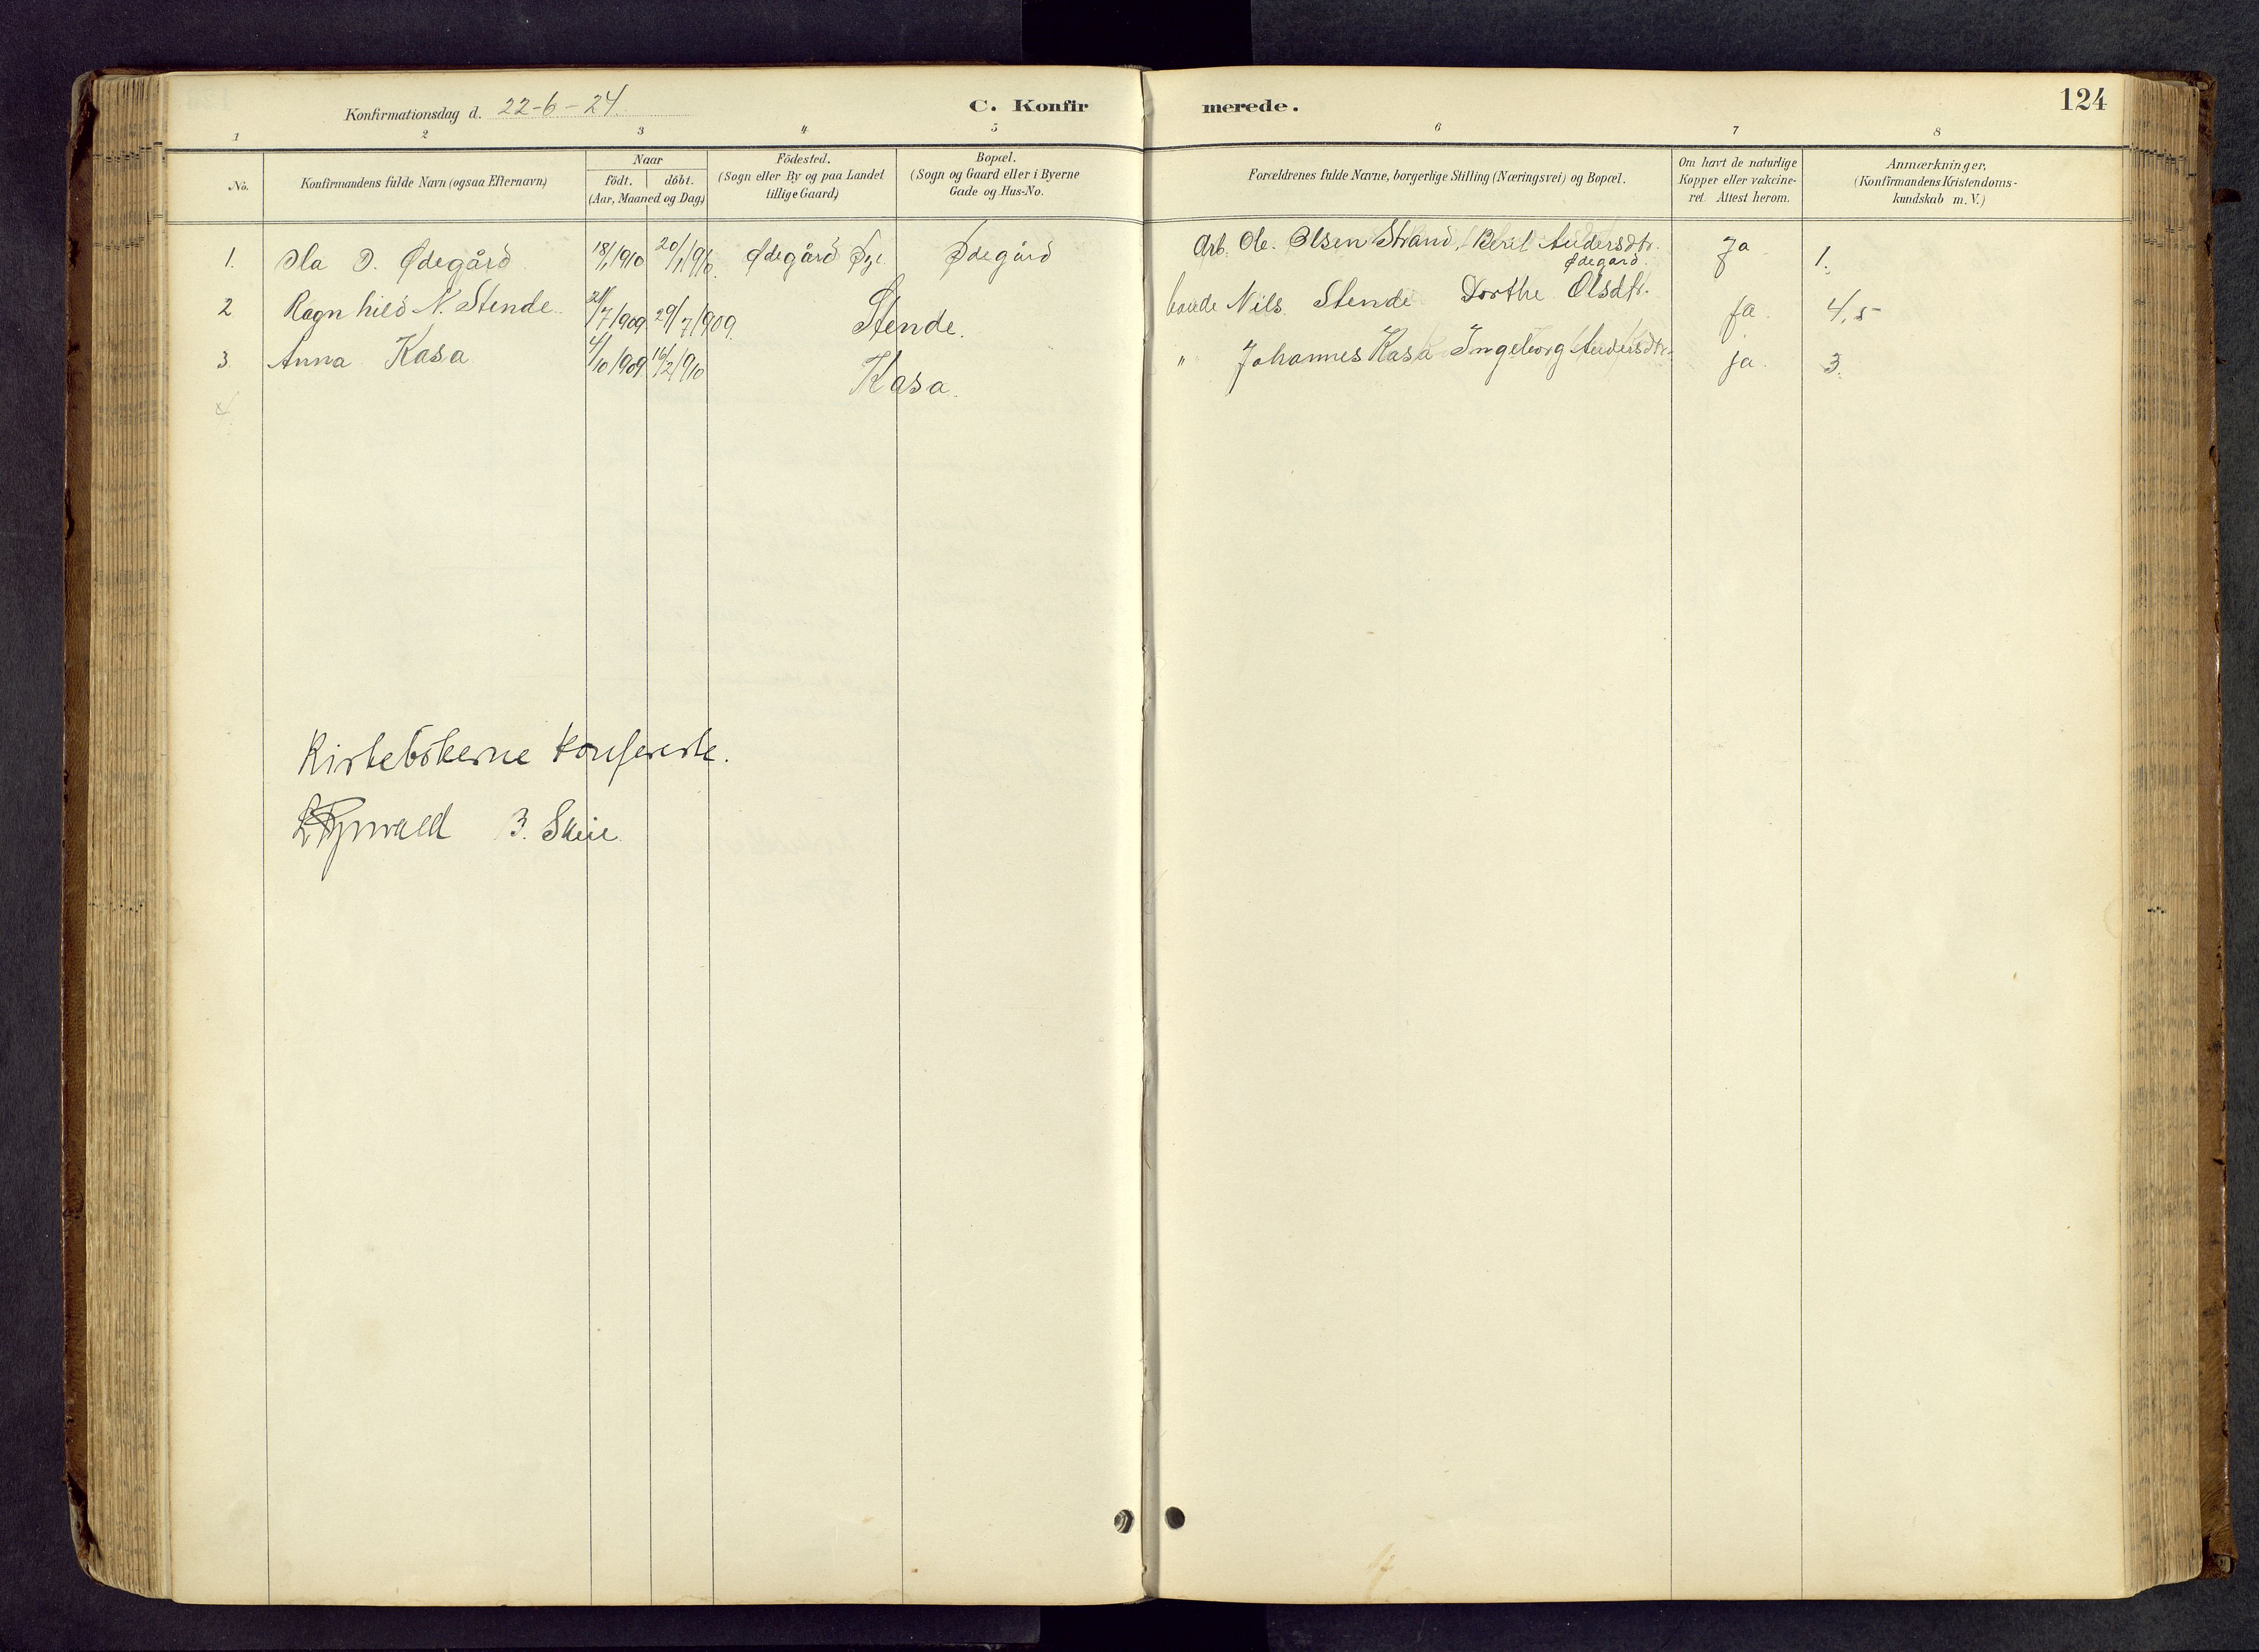 Konfirmationsdag d. 22-6-24.
C. Konfirmerede.
124
1 2 3 4 5 6 7 8
No.
Konfirmandens fulde Navn (ogsaa Efternavn)
Naar
födt. döbt.
(Aar, Maaned og Dag)
Födested.
(Sogn eller By og paa Landet
tillige Gaard)
Bopæl.
(Sogn og Gaard eller i Byerne
Gade og Hus-No.
Forældrenes fulde Navne, borgerlige Stilling (Næringsvei) og Bopæl.
Om havt de naturlige
Kopper eller vakcine-
ret. Attest herom.
Anmærkninger,
(Konfirmandens Kristendoms-
kundskab m.V.)
1. Ola O. Ødegård 18/1 1910 20/1 1910 Ødegård Ødegård Arb. Ole Olsen Strand, Berit Andersdtr. Ødegard. Ja 1.
2 Ragnhild N. Stende 21/7 1909 29/7 1909 Stende. Nils Stende Dorthe Olsdtr. Ja. 4,5
3 Anna Kasa 4/10 1909 16/2 1910 Kasa. " Johannes Kasa Ingeborg Andersdtr. ja. 3.
4
Kirkebökerne konfererte.
B. Skeie